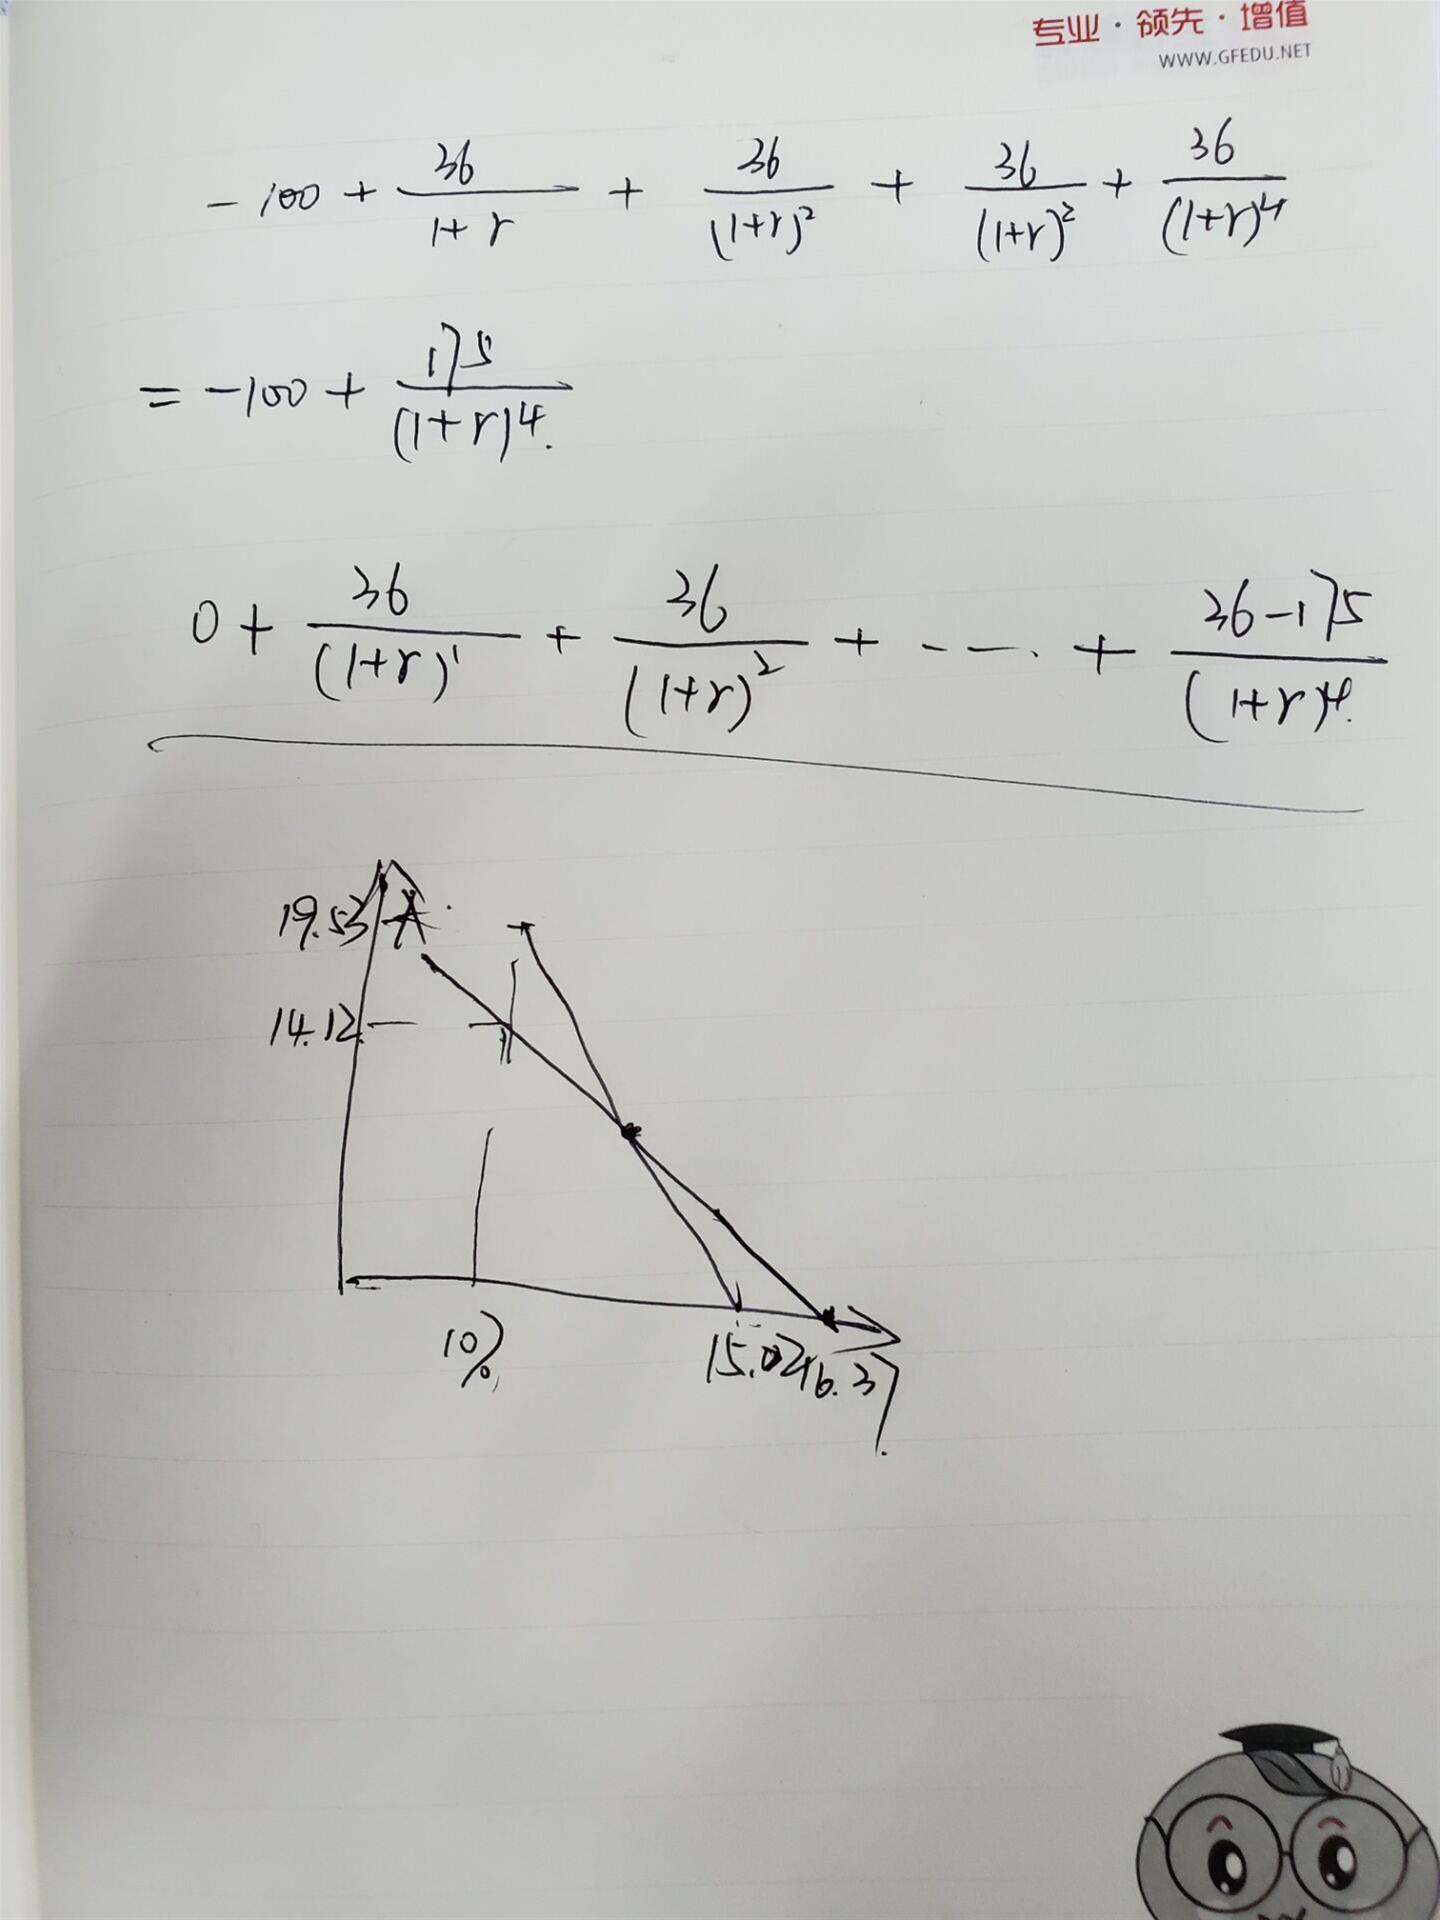 专业·领先·增值
WWW.GFEDU.NET
-100 + 36/(1+r) + 36/(1+r)² + 36/(1+r)² + 36/(1+r)⁴
= -100 + 175/(1+r)⁴.
0 + 36/(1+r)¹ + 36/(1+r)² + -—. + (36-175)/(1+r)⁴.
19.53
14.12
10%
15.02 16.37.